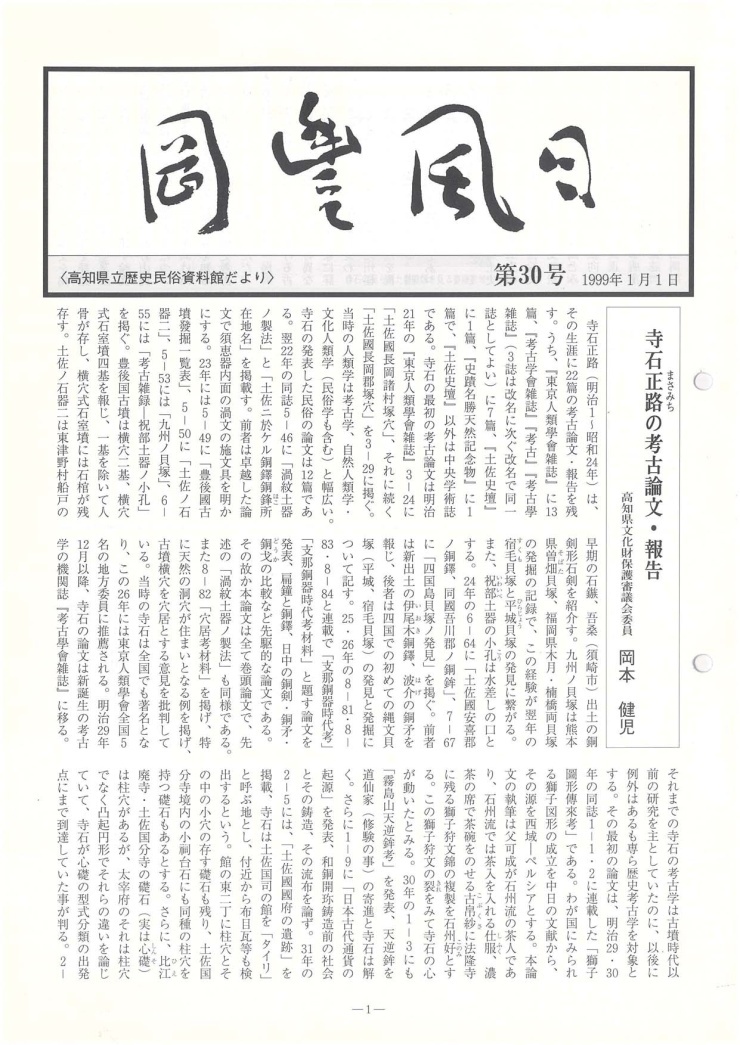 岡豊風日
〈高知県立歴史民俗資料館だより〉
第30号
1999年1月1日
寺石正路の考古論文・報告
まさみち
高知県文化財保護審議会委員 岡本 健児
寺石正路（明治1～昭和24年）は、
その生涯に22篇の考古論文・報告を残
す。うち、『東京人類學會雑誌』に13
篇、『考古學會雑誌』『考古』『考古學
雑誌』（3誌は改名に次ぐ改名で同一
誌としてよい）に7篇、『土佐史壇』
に1篇、『史蹟名勝天然記念物』に1
篇で、『土佐史壇』以外は中央学術誌
である。寺石の最初の考古論文は明治
21年の『東京人類學會雑誌』3－24に
「土佐國長岡諸村塚穴」、それに続く
「土佐國長岡郡塚穴」を3－29に掲ぐ。
当時の人類学は考古学、自然人類学・
文化人類学（民俗学も含む）と幅広い。
寺石の発表した民俗の論文は12篇であ
る。翌22年の同誌5－46に「渦紋土器
ノ製法」と「土佐ニ於ケル銅鐸銅鋒所
在地名」を掲載す。前者は卓越した論
文で須恵器内面の渦文の施文具を明か
にする。23年には5－49に「豊後國古
墳發掘一覧表」、5－50に「土佐ノ石
器二」、5－53には「九州ノ貝塚」、6－
55には「考古雑録 祝部土器ノ小孔」
を掲ぐ。豊後国古墳は横穴二基、横穴
式石室墳四基を報じ、一基を除いて人
骨が存し、横穴式石室墳には石棺が残
存す。土佐ノ石器二は東津野村船戸の
早期の石鏃、吾桑（須崎市）出土の銅
剣形石剣を紹介す。九州ノ貝塚は熊本
県曽畑貝塚、福岡県木月・楠橋両貝塚
の発掘の記録で、この経験が翌年の
宿毛貝塚と平城貝塚の発見に繋がる。
また、祝部土器の小孔は水差しの口と
する。24年の6－64に「土佐國安喜郡
ノ銅鐸、同國吾川郡ノ銅鉾」、7－67
に「四国島貝塚ノ発見」を掲ぐ。前者
は新出土の伊尾木銅鐸、波介の銅矛を
報じ、後者は四国での初めての縄文貝
塚（平城、宿毛貝塚）の発見と発掘に
ついて記す。25・26年の8－81・8－
83・8－84と連載で「支那銅器時代考」
「支那銅器時代考材料」と題す論文を
発表、扁鐘と銅鐸、日中の銅剣・銅矛・
銅戈の比較など先駆的な論文である。
その故か本論文は全て巻頭論文で、先
述の「渦紋土器ノ製法」も同様である。
また8－82「穴居考材料」を掲げ、特
に天然の洞穴が住まいとなる例を掲げ、
古墳横穴を穴居とする意見を批判して
いる。当時の寺石は全国でも著名とな
り、この26年には東京人類學會全国5
名の地方委員に推薦される。明治29年
12月以降、寺石の論文は新誕生の考古
学の機関誌『考古學會雑誌』に移る。
それまでの寺石の考古学は古墳時代以
前の研究を主としていたのに、以後に
例外はあるも専ら歴史考古学を対象と
する。その最初の論文は、明治29・30
年の同誌1－1・2に連載した「獅子
圖形傳來考」である。わが国にみられ
る獅子図形の成立を中日の文献から、
その源を西域～ペルシアとする。本論
文の執筆は父可成が石州流の茶人であ
り、石州流では茶入を入れる仕服、濃
茶の席で茶碗をのせる古帛紗に法隆寺
に残る獅子狩文錦の複製を石州好とす
る。この獅子狩文の裂をみて寺石の心
が動いたとみる。30年の1－3にも
「霧島山天逆鉾考」を発表、天逆鉾を
道仙家（修験の事）の寄進と寺石は解
く。さらに1－9に「日本古代通貨の
起源」を発表、和銅開珎鋳造前の社会
とその鋳造、その流布を論ず。31年の
2－5には、「土佐國國府の遺跡」を
掲載、寺石は土佐国司の館を「タイリ」
と呼ぶ地とし、付近から布目瓦等も検
出するという。館の東二丁に柱穴とそ
の中の小穴の存す礎石も残り、土佐国
分寺境内の小祠台石にも同種の柱穴を
持つ礎石もあるとする。さらに、比江
廃寺・土佐国分寺の礎石（実は心礎）
は柱穴があるが、太宰府のそれは柱穴
でなく凸起円形でそれらの違いを論じ
ていて、寺石が心礎の型式分類の出発
点にまで到達していた事が判る。2－
―1―